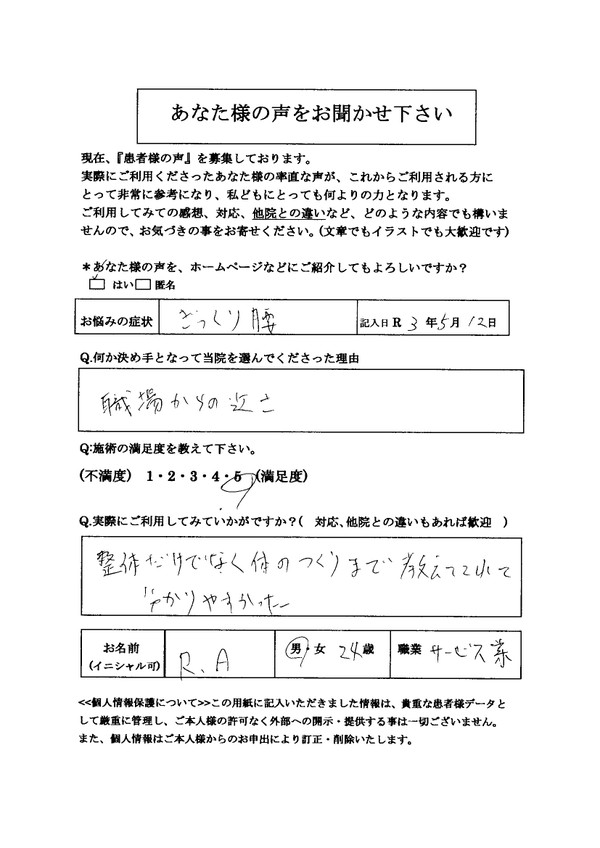 あなた様の声をお聞かせ下さい
現在、『患者様の声』を募集しております。
実際にご利用くださったあなた様の率直な声が、これからご利用される方に
とって非常に参考になり、私どもにとっても何よりの力となります。
ご利用してみての感想、対応、他院との違いなど、どのような内容でも構いま
せんので、お気づきの事をお寄せください。(文章でもイラストでも大歓迎です)
＊あなた様の声を、ホームページなどにご紹介してもよろしいですか？
はい 匿名
お悩みの症状 ぎっくり腰 記入日 R 3 年 5月 12日
Q.何か決め手となって当院を選んでくださった理由
職場からの近さ
Q:施術の満足度を教えて下さい。
(不満度) 1・2・3・4・5 (満足度)
Q.実際にご利用してみていかがですか？( 対応、他院との違いもあれば歓迎 )
整体だけでなく体のつくりまで教えてくれて
分かりやすかった
お名前 (イニシャル可) R.A 男・女 24歳 職業 サービス業
<<個人情報保護について>>この用紙に記入いただきました情報は、貴重な患者様データと
して厳重に管理し、ご本人様の許可なく外部への開示・提供する事は一切ございません。
また、個人情報はご本人様からのお申出により訂正・削除いたします。